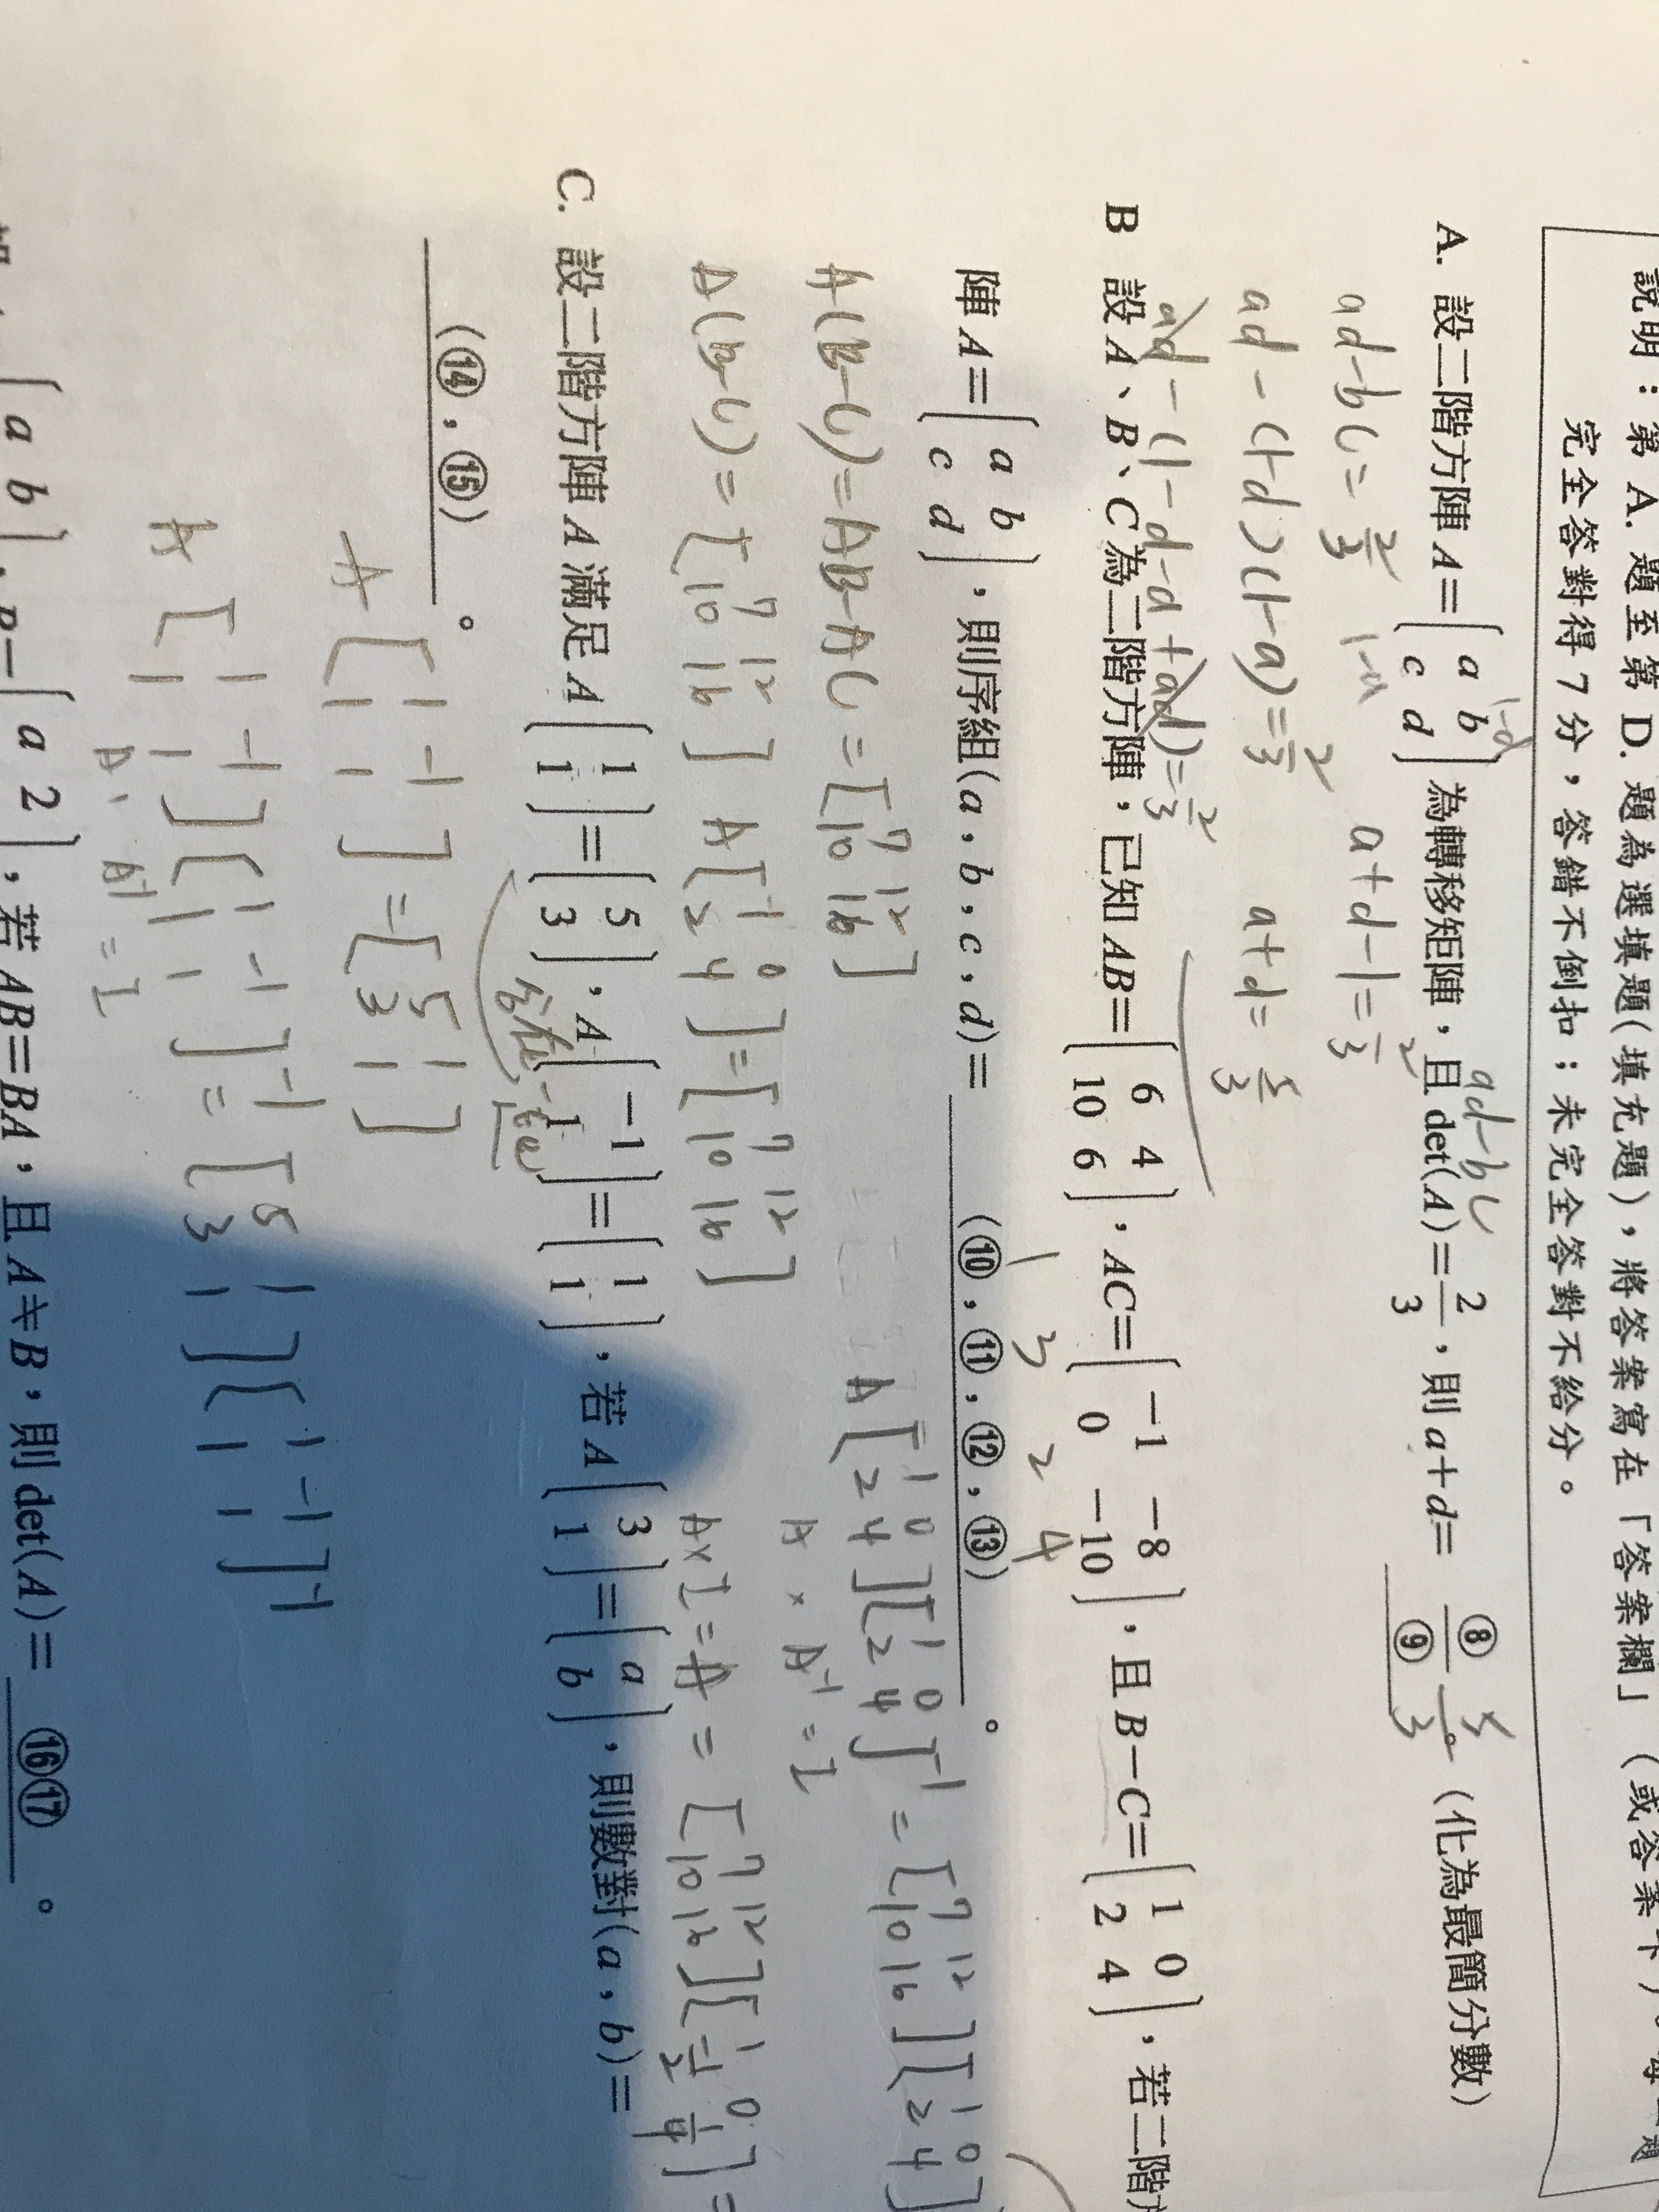 說明：第 A. 題至第 D. 題為選填題(填充題)，將答案寫在「答案欄」（或答案卡）。每
完全答對得 7 分，答錯不倒扣；未完全答對不給分。
A. 設二階方陣 A=[a b; c d] 為轉移矩陣，且 det(A)=2/3，則 a+d= ⑧/⑨。(化為最簡分數)
1-d
ad-bc
5/3
ad-bc=2/3 1-a a+d-1=2/3
ad-(1-d)(1-a)=2/3 a+d=5/3
ad-(1-d-a+ad)=2/3
B 設 A、B、C 為二階方陣，已知 AB=[6 4; 10 6]，AC=[-1 -8; 0 -10]，且 B-C=[1 0; 2 4]，若二階
陣 A=[a b; c d]，則序組(a，b，c，d)= (⑩，⑪，⑫，⑬)。
1 3 2 4
A(B-C)=AB-AC=[7 12; 10 16]
A[1 0; 2 4][1 0; 2 4]^-1=[7 12; 10 16][1 0; 2 4]
A × A^-1 = I
A(B-C)=[7 12; 10 16] A[1 0; 2 4]=[7 12; 10 16]
A×I=A=[7 12; 10 16][1 0; -1/2 1/4]=
C. 設二階方陣 A 滿足 A[1; 1]=[5; 3]，A[-1; 1]=[1; 1]，若 A[3; 1]=[a; b]，則數對(a，b)=
(⑭，⑮)。
A[1 -1; 1 1]=[5 1; 3 1]
A[1 -1; 1 1][1 -1; 1 1]^-1=[5 1; 3 1][1 -1; 1 1]^-1
A · A^-1 = I
[a b]，B=[a 2]，若 AB=BA，且 A≠B，則 det(A)= ⑯⑰。